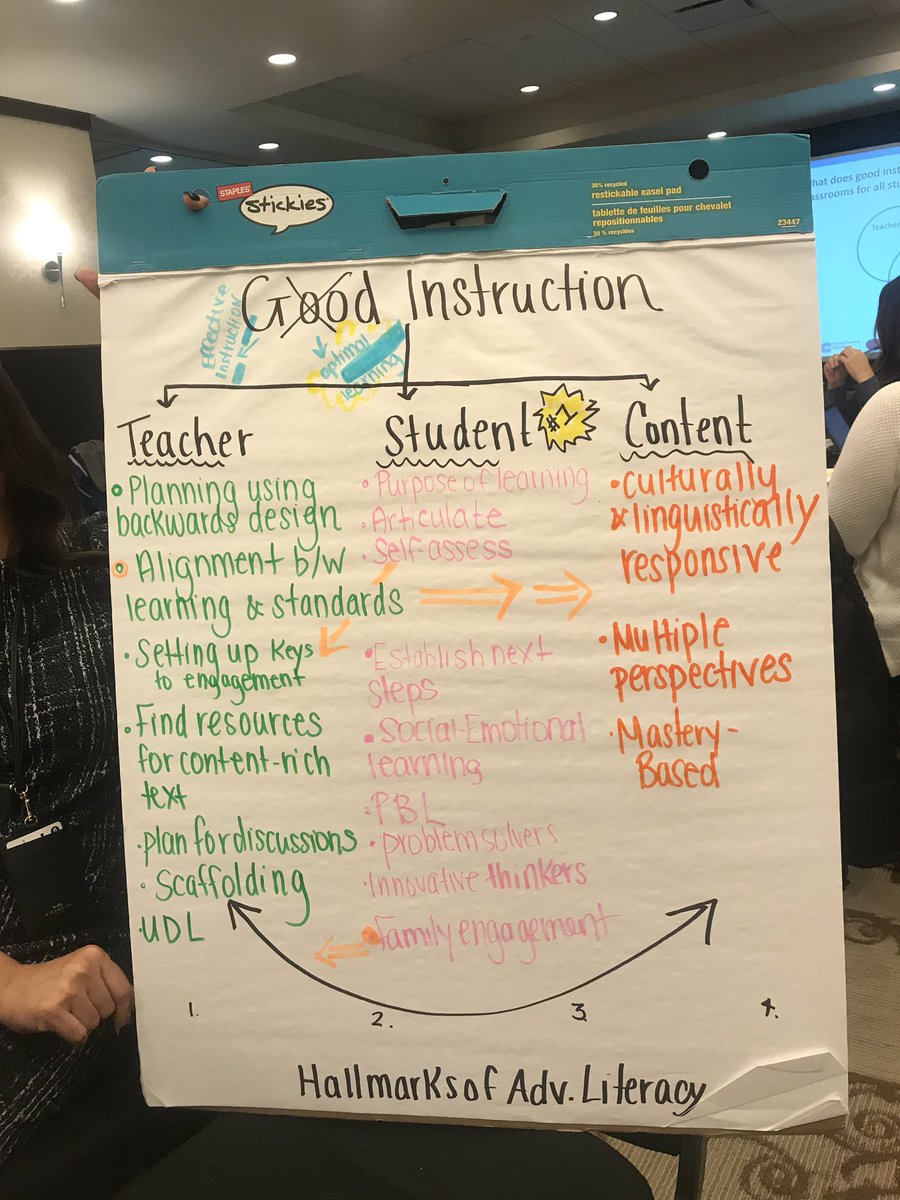 STAPLES
Stickies
30% recycled
restickable easel pad
tablette de feuilles pour chevalet
repositionnables
30 % recyclées
23447
hat does good inst
ssrooms for all stu
Teache
Good Instruction
Effective
Instruction
optimal
learning
Teacher
• Planning using
backwards design
• Alignment b/w
learning & standards
• Setting up Keys
to engagement
• Find resources
for content-rich
text
• plan for discussions
• Scaffolding
• UDL
Student #1
• Purpose of learning
• Articulate
• Self assess
• Establish next
steps
• Social-Emotional
learning
• PBL
• problem solvers
• Innovative thinkers
• Family engagement
Content
• culturally
& linguistically
responsive
• Multiple
perspectives
• Mastery-
Based
1.
2.
3.
4.
Hallmarks of Adv. Literacy